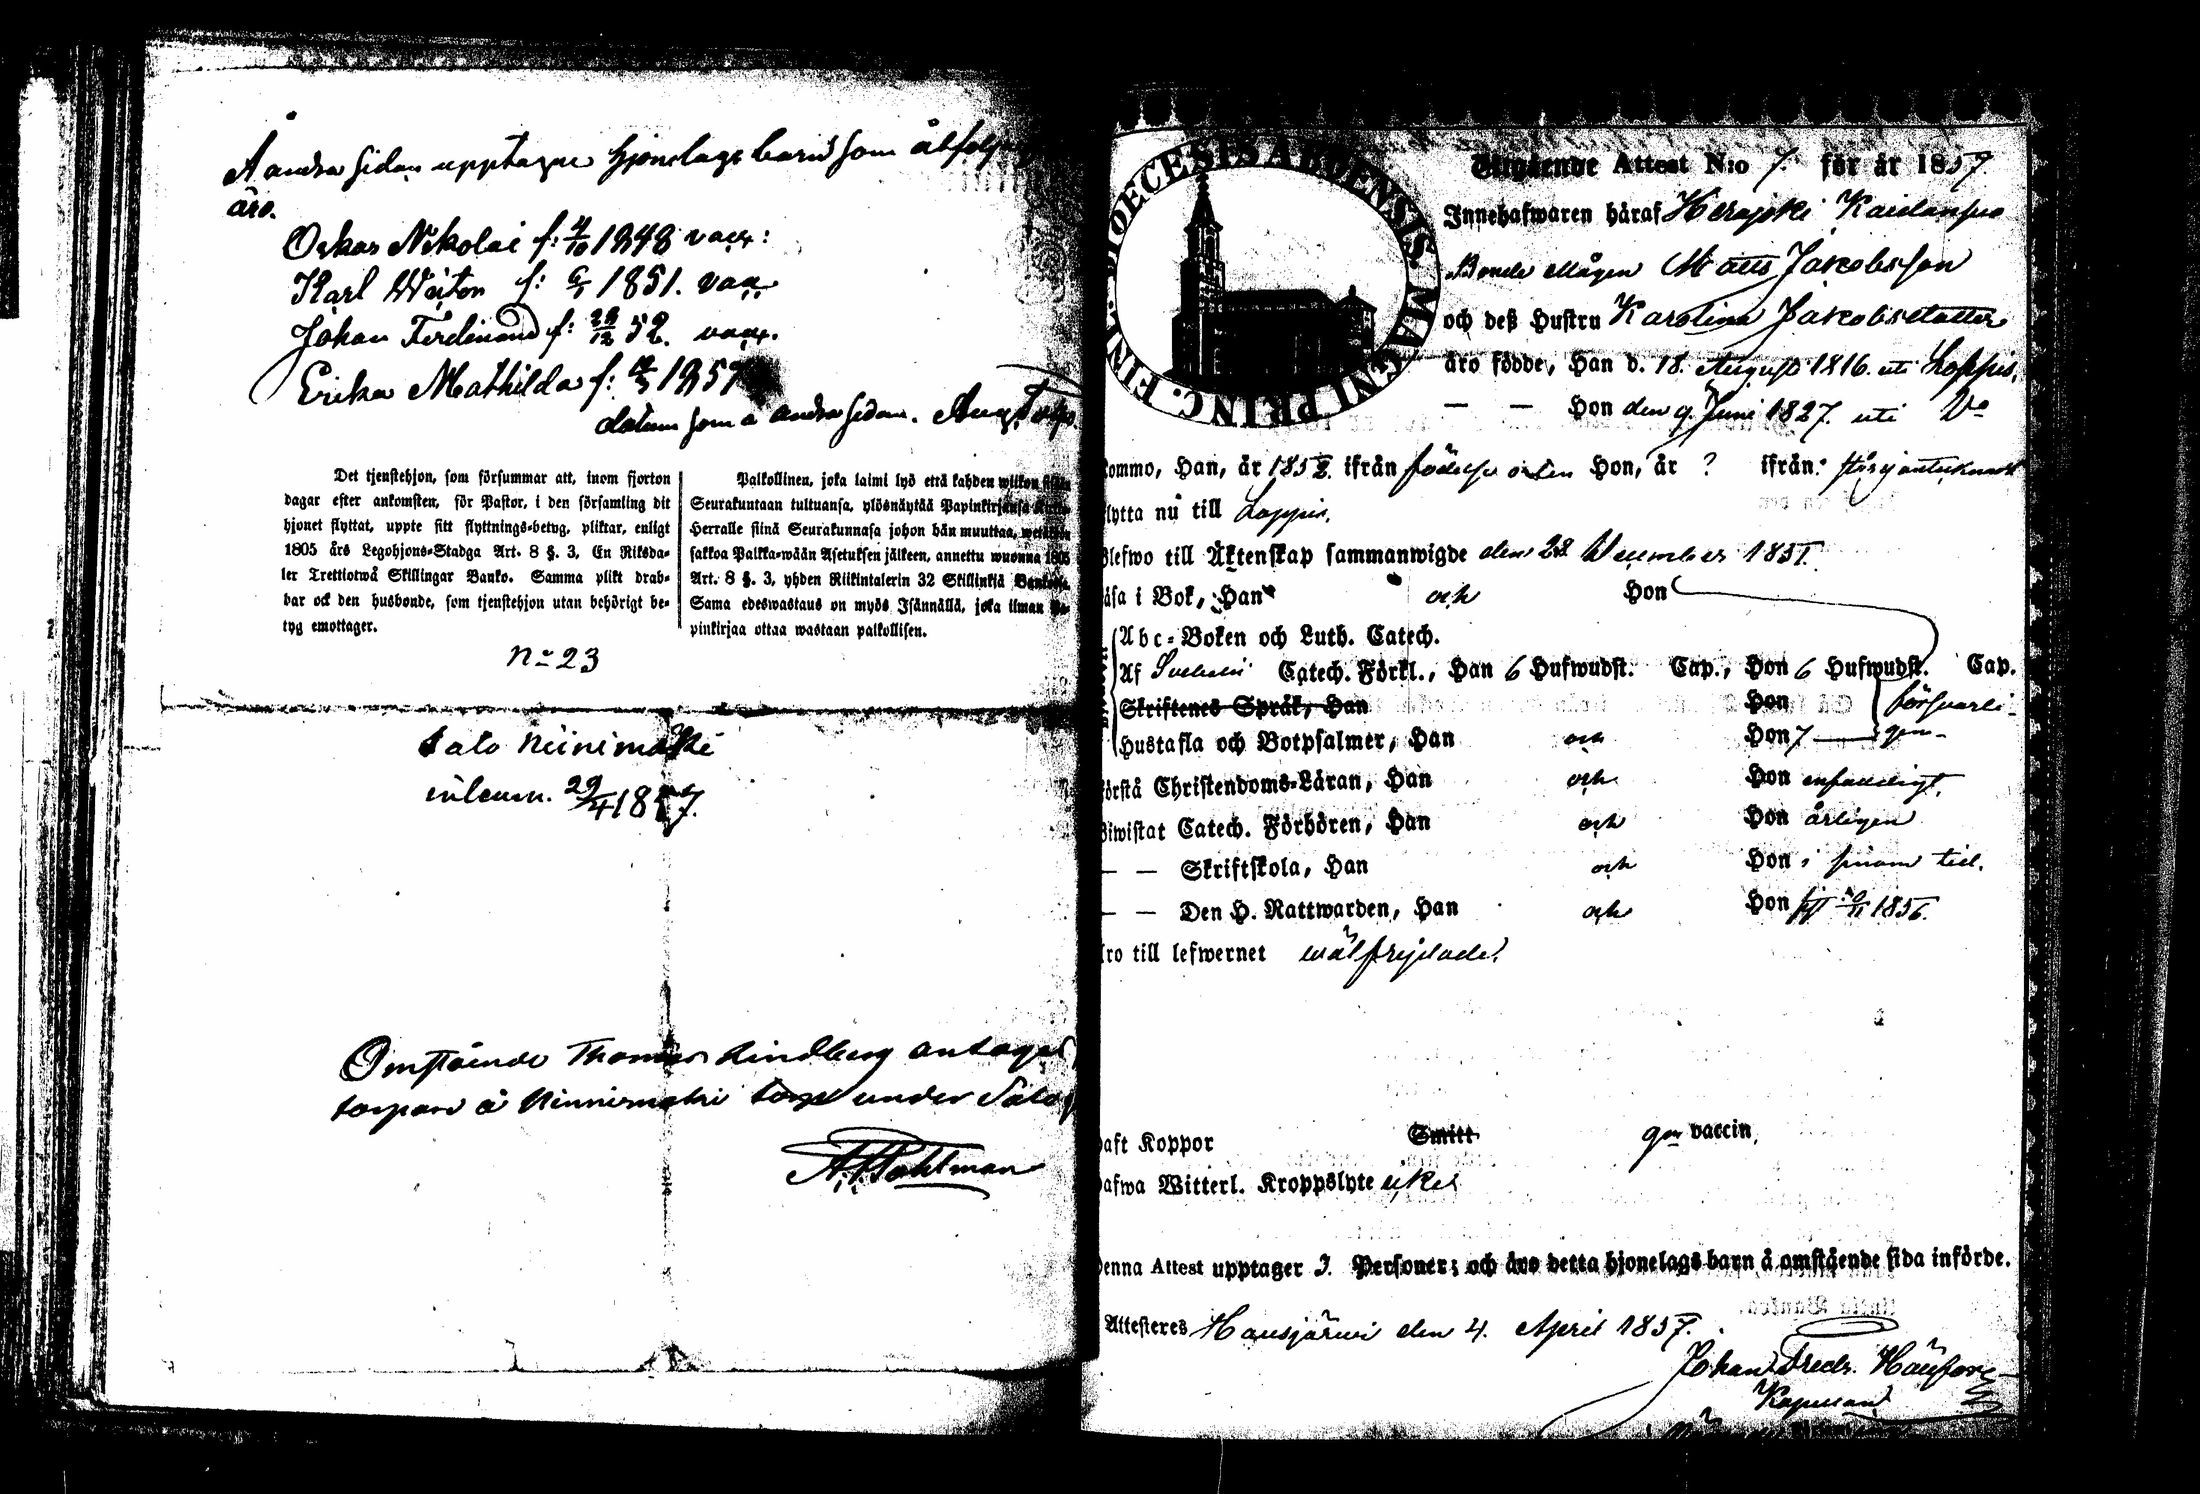 Å andra sidan upptagne hjonelags barn som åtfölja
äro.
Oskar Nikolai f: 4/10 1848 vacc:
Karl Wiktor f: 6/1 1851. vacc.
Johan Ferdinand f: 28/12 52. vacc.
Erika Mathilda f: 1857
datum som å andra sidan.
Det tjenstehjon, som försummar att, inom fjorton
dagar efter ankomsten, för Pastor, i den församling dit
hjonet flyttat, uppte sitt flyttnings-betyg, pliktar, enligt
1805 års Legohjons-Stadga Art. 8 §. 3, En Riksda-
ler Trettiotwå Skillingar Banko. Samma plikt drab-
bar ock den husbonde, som tjenstehjon utan behörigt be-
tyg emottager.
Palkollinen, joka laimi lyö että kahden wiikon
Seurakuntaan tultuansa, ylösnäytää Papinkirjansa
Herralle siinä Seurakunnasa johon hän muuttaa,
sakkoa Palkka-wään Asetuksen jälkeen, annettu wuonna 1805
Art. 8 §. 3, yhden Riikintalerin 32 Skillinkiä
Sama edeswastaus on myös Isännällä, joka ilman
pinkirjaa ottaa wastaan palkollisen.
No 23
Salo Niinimäki
inkom. 29/4 1857.
Omstående Thomas Lindberg antages
torpare å Ninnimäki torp under Salo
A. Pahlman
DIOECESIS ABOENSIS MAGNI PRINC. FINL.
Utgående Attest N:o 7. för år 1857
Innehafwaren häraf Herajoki
Bonde Mågen Matts Jakobsson
och deß Hustru Karolina Jakobsdotter
äro födde, Han d. 18. August 1816. uti Loppis,
— — Hon den 9. Juni 1827. uti Do
kommo, Han, år 1852. ifrån födelse orten Hon, år ? ifrån
flytta nu till Loppis.
Blefwo till Äktenskap sammanwigde den 28 December 1851.
läsa i Bok, Han och Hon
Abc-Boken och Luth. Catech.
Af Svebelii Catech. Förkl., Han 6 Hufwudst. Cap., Hon 6 Hufwudst. Cap.
Skriftenes Språk, Han Hon försvarli-
Hustafla och Botpsalmer, Han och Hon gen
förstå Christendoms-Läran, Han och Hon enfaldigt.
Biwistat Catech. Förhören, Han och Hon årligen
— — Skriftskola, Han och Hon i sinom tid.
— — Den H. Nattwarden, Han och Hon 1856.
äro till lefwernet wälfrejdade.
haft Koppor Smitt gm vaccin,
hafwa Witterl. Kroppslyte icke
Denna Attest upptager Personer; och äro detta hjonelags barn å omstående sida införde.
Attesteras Hausjärwi den 4. April 1857.
Johan Fredr.
Kapellan